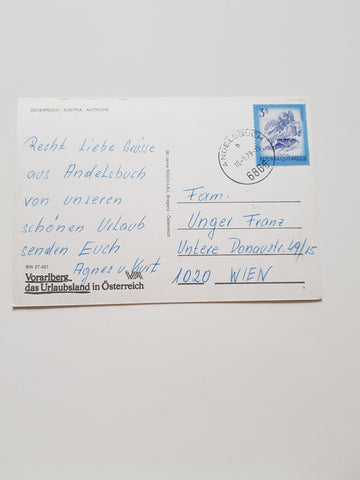 ÖSTERREICH - AUSTRIA - AUTRICHE
Recht Liebe Grüsse
aus Andelsbuch
von unseren
schönen Urlaub
senden Euch
Agnes u. Kurt
BW 27.457
Vorarlberg
das Urlaubsland in Österreich
ANDELSBUCH
6866
REPUBLIK ÖSTERREICH
Fam.
Unger Franz
Untere Donaustr. 49/15
1020 WIEN